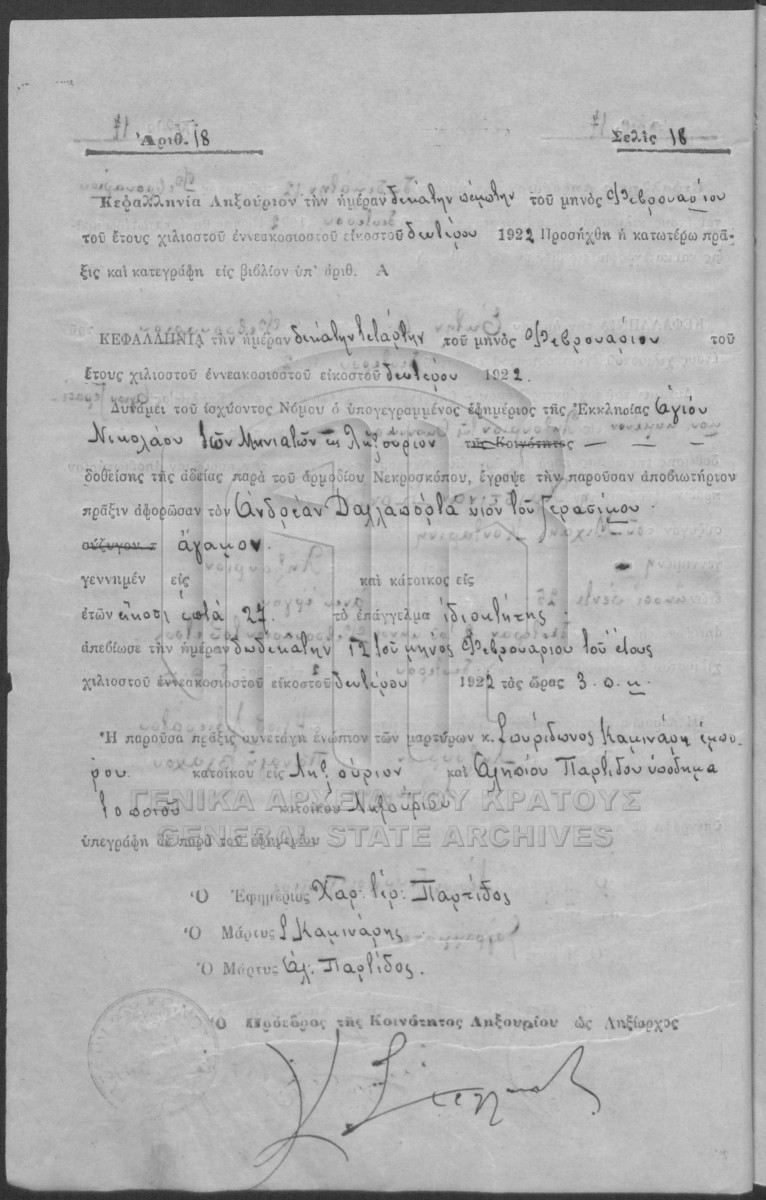 Ἀριθ. 18 Σελὶς 18
Κεφαλληνία Ληξούριον τὴν ἡμέραν δεκάτην πέμπτην τοῦ μηνὸς Φεβρουαρίου
τοῦ ἔτους χιλιοστοῦ ἐννεακοσιοστοῦ εἰκοστοῦ δευτέρου 1922 Προσήχθη ἡ κατωτέρω πρᾶ-
ξις καὶ κατεγράφη εἰς βιβλίον ὑπ' ἀριθ. Α
ΚΕΦΑΛΛΗΝΙΑ τὴν ἡμέραν δεκάτην τετάρτην τοῦ μηνὸς Φεβρουαρίου τοῦ
ἔτους χιλιοστοῦ ἐννεακοσιοστοῦ εἰκοστοῦ δευτέρου 1922.
Δυνάμει τοῦ ἰσχύοντος Νόμου ὁ ὑπογεγραμμένος ἐφημέριος τῆς Ἐκκλησίας Ἁγίου
Νικολάου τῶν Μηνιατῶν εἰς Ληξούριον τῆς Κοινότητος — — —
δοθείσης τῆς ἀδείας παρὰ τοῦ ἁρμοδίου Νεκροσκόπου, ἔγραψε τὴν παροῦσαν ἀποβιωτήριον
πρᾶξιν ἀφορῶσαν τὸν Ἀνδρέαν Δαλλαπόρτα υἱὸν τοῦ Γερασίμου.
σύζυγον τ ἄγαμον.
γεννημέν εἰς καὶ κάτοικος εἰς
ἐτῶν εἴκοσι ἑπτὰ 27. τὸ ἐπάγγελμα ἰδιοκτήτης.
ἀπεβίωσε τὴν ἡμέραν δωδεκάτην 12 τοῦ μηνὸς Φεβρουαρίου τοῦ ἔτους
χιλιοστοῦ ἐννεακοσιοστοῦ εἰκοστοῦ δευτέρου 1922 τὰς ὥρας 3. π. μ.
Ἡ παροῦσα πρᾶξις συνετάγη ἐνώπιον τῶν μαρτύρων κ. Σπυρίδωνος Καμινάρη ἐμπό-
ρου. κατοίκου εἰς Ληξούριον καὶ Ἀλησίου Παρτίδου ὑποδημα
τοποιοῦ κατοίκου Ληξούριον
ΓΕΝΙΚΑ ΑΡΧΕΙΑ ΤΟΥ ΚΡΑΤΟΥΣ
GENERAL STATE ARCHIVES
ὑπεγράφη δὲ παρὰ τοῦ ἐφημερίου
Ὁ Ἐφημέριος Χαρ. ἱερ. Παρτίδος
Ὁ Μάρτυς Σ Καμινάρης
Ὁ Μάρτυς Ἀλ. Παρτίδος.
Ὁ Πρόεδρος τῆς Κοινότητος Ληξουρίου ὡς Ληξίαρχος